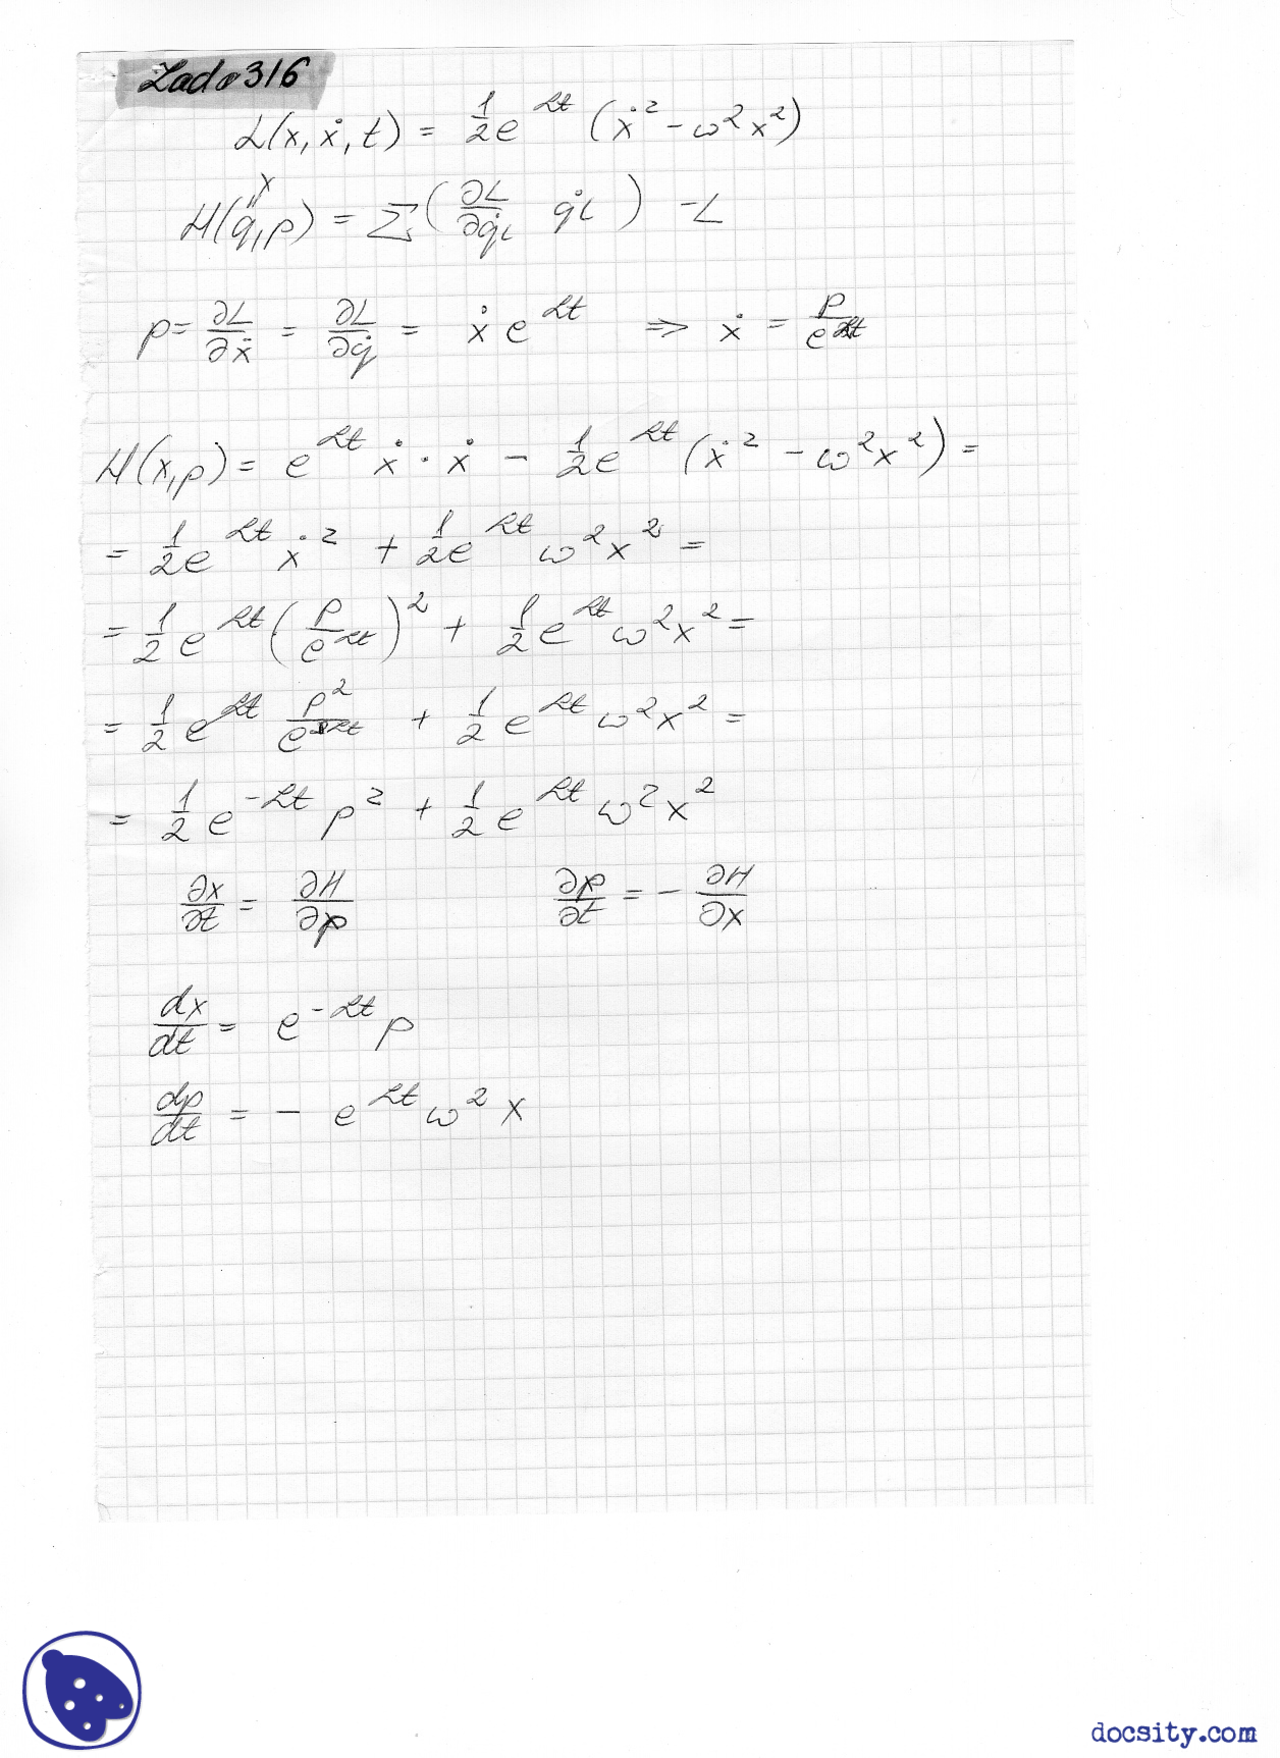 Zad. 316
L(x, ẋ, t) = 1/2 e^{αt} (ẋ² - ω²x²)
x
H(q, p) = Σ(∂L/∂q̇i q̇i) - L
p = ∂L/∂ẋ = ∂L/∂q̇ = ẋ e^{αt} ⇒ ẋ = p/e^{αt}
H(x,p) = e^{αt} ẋ · ẋ - 1/2 e^{αt} (ẋ² - ω²x²) =
= 1/2 e^{αt} ẋ² + 1/2 e^{αt} ω²x² =
= 1/2 e^{αt} (p/e^{αt})² + 1/2 e^{αt} ω²x² =
= 1/2 e^{αt} p²/e^{2αt} + 1/2 e^{αt} ω²x² =
= 1/2 e^{-αt} p² + 1/2 e^{αt} ω²x²
∂x/∂t = ∂H/∂p ∂p/∂t = - ∂H/∂x
dx/dt = e^{-αt} p
dp/dt = - e^{αt} ω² x
docsity.com